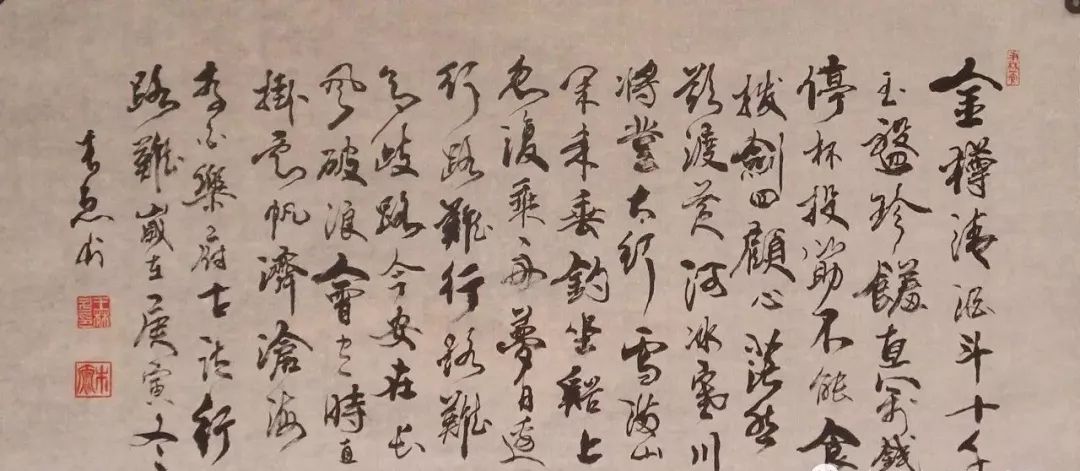 金樽清酒斗十千
玉盤珍饈直萬錢
停杯投筯不能食
拔劍四顧心茫然
欲渡黃河冰塞川
將登太行雪滿山
閑來垂釣坐谿上
忽復乘舟夢日邊
行路難行路難
多歧路今安在長
風破浪會有時直
掛雲帆濟滄海
李白樂府古詩行
路難歲在庚寅冬